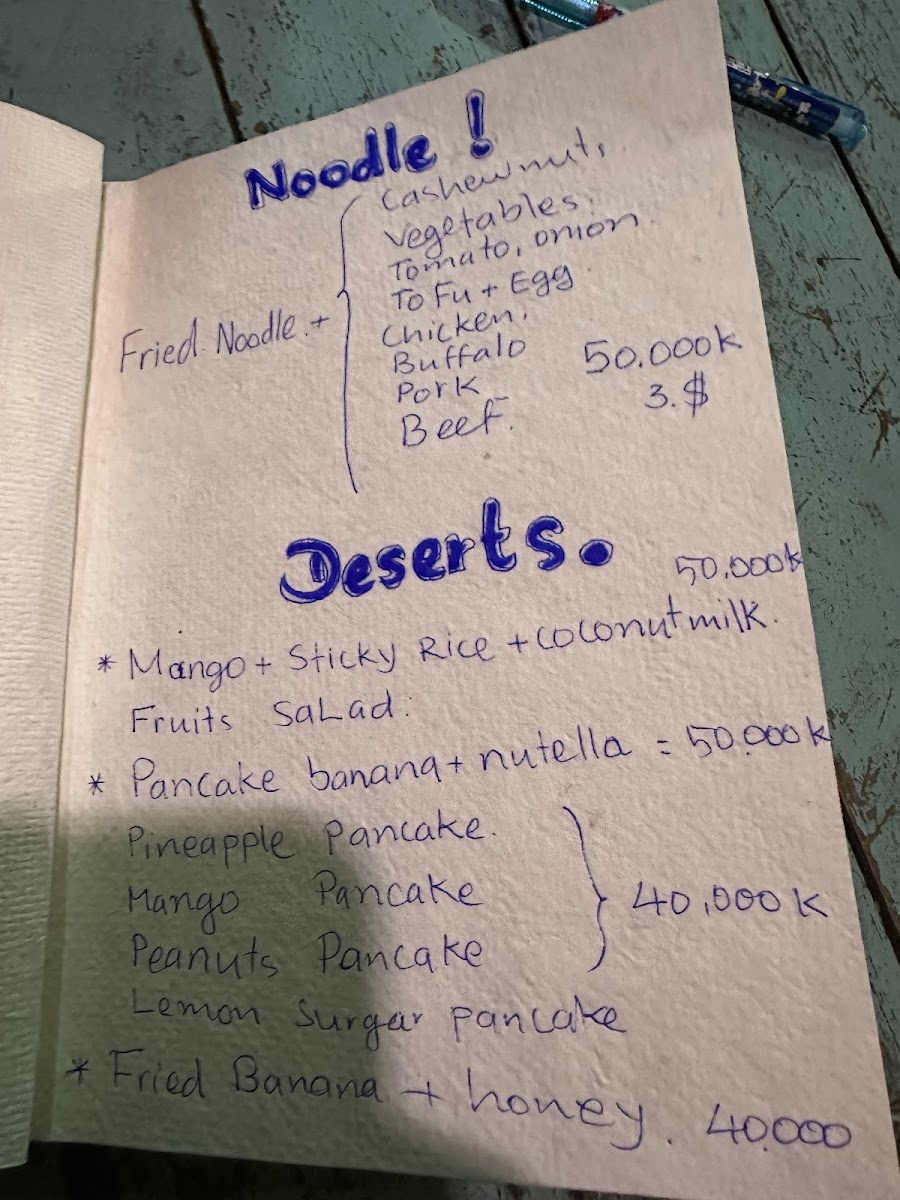 Noodle !
Cashewnut,
Vegetables.
Tomato, onion.
To Fu + Egg.
Fried Noodle. +
Chicken.
Buffalo
50.000k
Pork
3.$
Beef.
Deserts.
50.000k
* Mango + Sticky Rice + coconutmilk.
Fruits Salad.
* Pancake banana + nutella = 50.000k
Pineapple Pancake.
Mango Pancake
40,000k
Peanuts Pancake
Lemon Surgar pancake
* Fried Banana + honey. 40.000